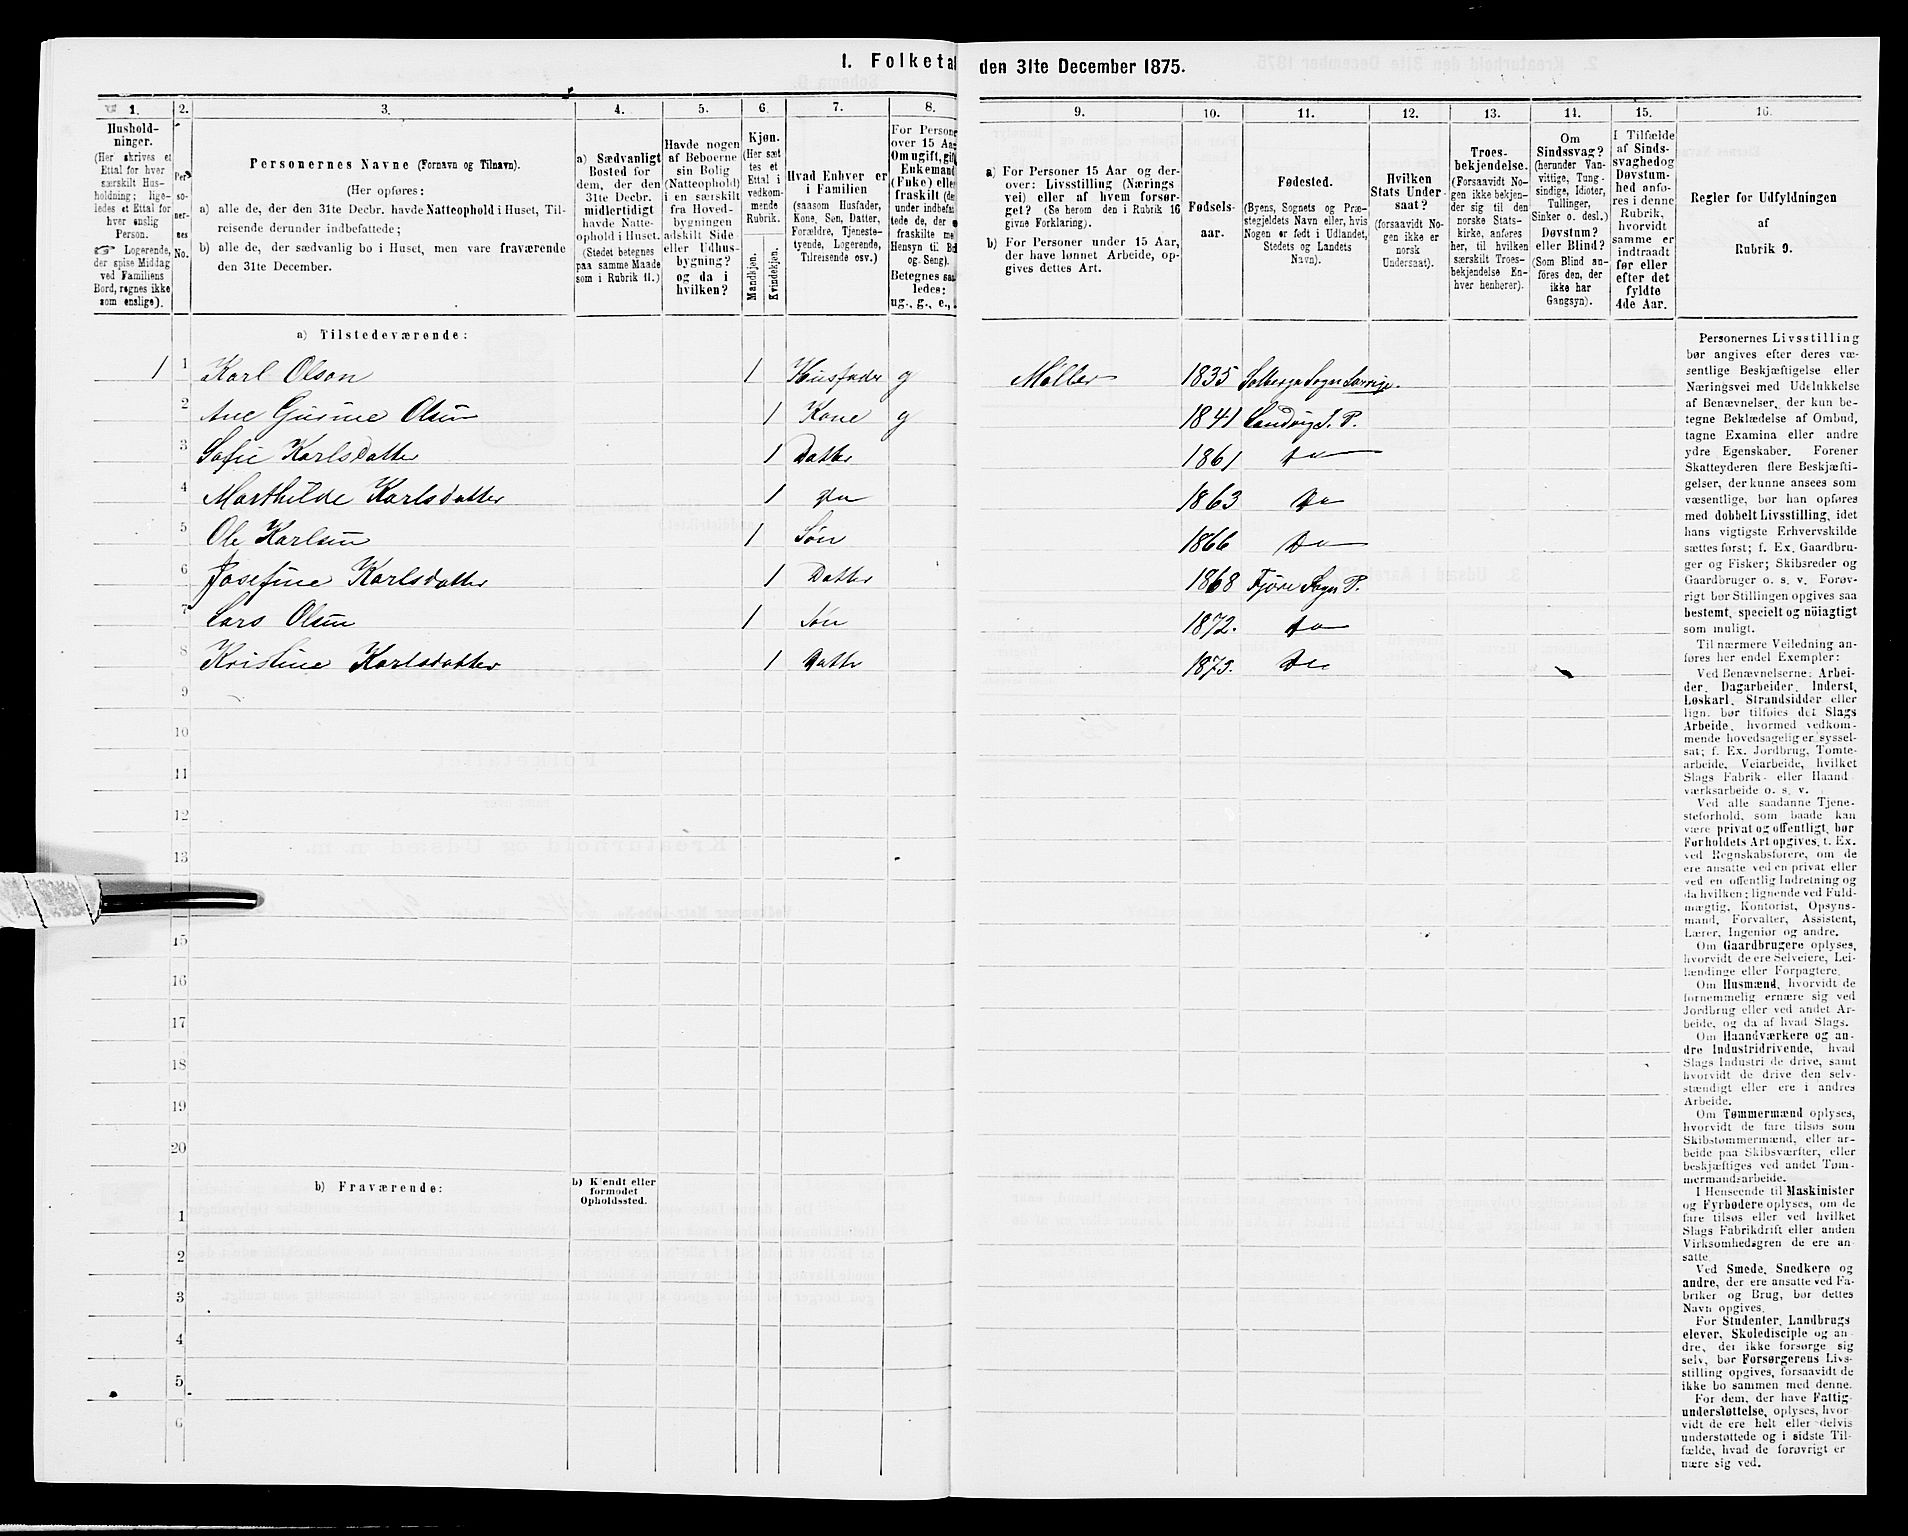 1. Folketal
den 31te December 1875.
1. 2. 3. 4. 5. 6. 7. 8. 9. 10. 11. 12. 13. 14. 15. 16.
Hushold-
ninger.
(Her skrives et
Ettal for hver
særskilt Hus-
holdning; lige-
ledes et Ettal for
hver enslig
Person.
☞ Logerende,
der spise Middag
ved Familiens
Bord, regnes ikke
som enslige).
Per-
so-
ner-
nes
No.
Personernes Navne (Fornavn og Tilnavn).
(Her opføres:
a) alle de, der den 31te Decbr. havde Natteophold i Huset, Til-
reisende derunder indbefattede;
b) alle de, der sædvanlig bo i Huset, men vare fraværende
den 31te December.
a) Sædvanligt
Bosted for
dem, der den
31te Decbr.
midlertidigt
havde Natte-
ophold i Huset.
(Stedet betegnes
paa samme Maade
som i Rubrik 11.)
Havde nogen
af Beboerne
sin Bolig
(Natteophold)
i en særskilt
fra Hoved-
bygningen
adskilt Side
eller Udhus-
bygning?
og da i
hvilken?
Kjøn.
(Her sæt
tes et
Ettal i
vedkom-
mende
Rubrik.
Mandkjøn.
Kvindekjøn.
Hvad Enhver er
i Familien
(saasom Husfader,
Kone, Søn, Datter,
Forældre, Tjeneste-
tyende, Logerende,
Tilreisende osv.)
For Persone
over 15 Aar
Om ugift, gift
Enkemand
(Enke) eller
fraskilt (de
under indbefat
tede de, der e
fraskilte me
Hensyn til Bo
og. Seng).
Betegnes saa
ledes:
ug., g., e.,
a) For Personer 15 Aar og der-
over: Livsstilling (Nærings
vei) eller af hvem forsør-
get? (Se herom den i Rubrik 16
givne Forklaring).
b) For Personer under 15 Aar,
der have lønnet Arbeide, op-
gives dettes Art.
Fødsels-
aar.
Fødested.
(Byens, Sognets og Præ-
stegjeldets Navn eller, hvis
Nogen er født i Udlandet,
Stedets og Landets
Navn).
Hvilken
Stats Under-
saat?
(forsaavidt No-
gen ikke er
norsk
Undersaat).
Troes-
bekjendelse.
(Forsaavidt No-
gen ikke bekjen-
der sig til den
norske Stats-
kirke, anføres
her, til hvilken
særskilt Troes-
bekjendelse En-
hver henhører).
Om
Sindssvag?
(herunder Van-
vittige, Tung-
sindige, Idioter,
Tullinger,
Sinker o. desl.)
Døvstum?
eller Blind?
(Som Blind an-
føres den, der
ikke har
Gangsyn).
I Tilfælde
af Sinds-
svaghed og
Døvstum-
hed anfø-
res i denne
Rubrik,
hvorvidt
samme er
indtraadt
før eller
efter det
fyldte
4de Aar.
Regler for Udfyldningen
af
Rubrik 9.
a) Tilstedeværende:
1 1 Karl Olson 1 Husfader g Møller 1835 Solberga Sogn Sverige.
2 Ane Gurine Olsen 1 Kone g 1841 Landvig S. P.
3 Sofie Karlsdatter 1 Datter 1861 Do
4 Marthilde Karlsdatter 1 Do 1863 Do
5 Ole Karlsen 1 Søn 1866 Do
6 Josefine Karlsdatter 1 Datter 1868 Fjære Sogn P.
7 Lars Olsen 1 Søn 1872. Do
8 Kristine Karlsdatter 1 Datter 1873. Do
9
10
11
12
13
15
16
17
18
19
20
b) Fraværende:
b) Kjendt eller
formodet
Opholdssted.
1
2
3
4
5
6
Personernes Livsstilling
bør angives efter deres væ-
sentlige Beskjæftigelse eller
Næringsvei med Udelukkelse
af Benævnelser, der kun be-
tegne Beklædelse af Ombud,
tagne Examina eller andre
ydre Egenskaber. Forener
Skatteyderen flere Beskjæfti-
gelser, der kunne ansees som
væsentlige, bør han opføres
med dobbelt Livsstilling, idet
hans vigtigste Erhvervskilde
sættes først; f. Ex. Gaardbru-
ger og Fisker; Skibsreder og
Gaardbruger o. s. v. Forøv-
rigt bør Stillingen opgives saa
bestemt, specielt og nöiagtigt
som muligt.
Til nærmere Veiledning an-
føres her endel Exempler:
Ved Benævnelserne: Arbei-
der, Dagarbeider, Inderst,
Løskarl, Strandsidder eller
lign. bør tilføies det Slags
Arbeide, hvormed vedkom-
mende hovedsagelig er syssel-
sat; f. Ex. Jordbrug, Tomte-
arbeide, Veiarbeide, hvilket
Slags Fabrik- eller Haand-
værksarbeide o. s. v.
Ved alle saadanne Tjene-
steforhold, som baade kan
være privat og offentligt, bør
Forholdets Art opgives, f. Ex.
ved Regnskabsførere, om de
ere ansatte ved en privat eller
ved en offentlig Indretning og
da hvilken; lignende ved Fuld-
mægtig, Kontorist, Opsyns-
mand, Forvalter, Assistent,
Lærer, Ingeniør og andre.
Om Gaardbrugere oplyses,
hvorvidt de ere Selveiere, Lei-
lændinge eller Forpagtere.
Om Husmænd, hvorvidt de
fornemmelig ernære sig ved
Jordbrug eller ved andet Ar-
beide, og da af hvad Slags.
Om Haandværkere og an-
dre Industridrivende, hvad
Slags Industri de drive, samt
hvorvidt de drive den selv-
stændigt eller ere i andres
Arbeide.
Om Tømmermænd oplyses,
hvorvidt de fare tilsøs som
Skibstømmermænd, eller ar-
beide paa Skibsværfter, eller
beskjæftiges ved andet Tøm-
mermandsarbeide.
I Henseende til Maskinister
og Fyrbødere oplyses, om de
fare tilsøs eller ved hvilket
Slags Fabrikdrift eller anden
Virksomhedsgren de ere an-
satte.
Ved Smede, Snedkere og
andre, der ere ansatte ved Fa-
briker og Brug, bør dettes
Navn opgives.
For Studenter, Landbrugs
elever, Skoledisciple og an-
dre, der ikke forsørge sig
selv, bør Forsørgerens Livs-
stilling opgives, forsaavidt de
ikke bo sammen med denne.
For dem, der have Fattig-
understøttelse, oplyses, hvor-
vidt de ere helt eller delvis
understøttede og i sidste Til-
fælde, hvad de forøvrigt er
nære sig ved.